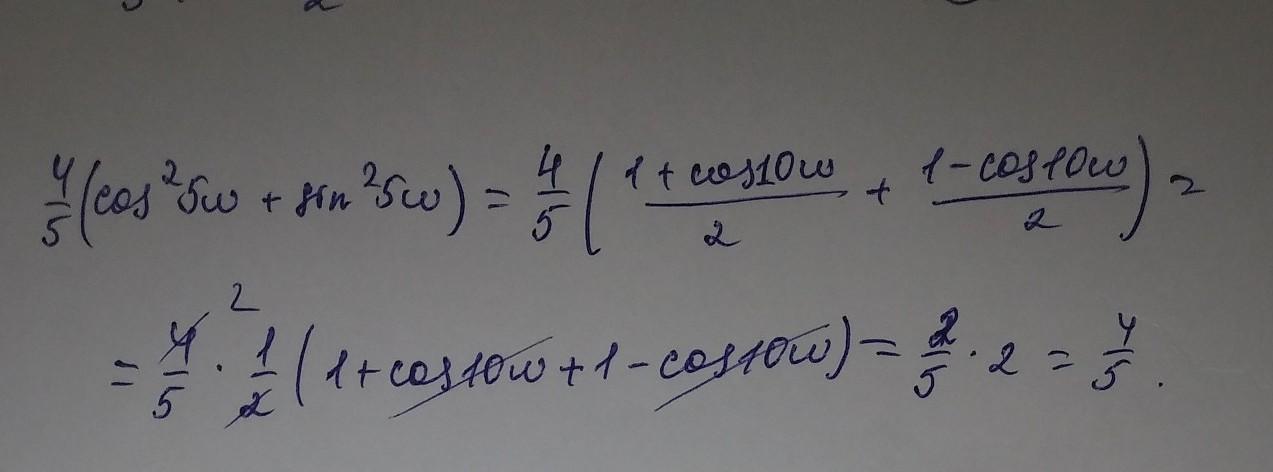 4/5(cos²5w + sin²5w) = 4/5((1+cos10w)/2 + (1-cos10w)/2) =
= 4/5 · 1/2 (1+cos10w+1-cos10w) = 2/5 · 2 = 4/5.